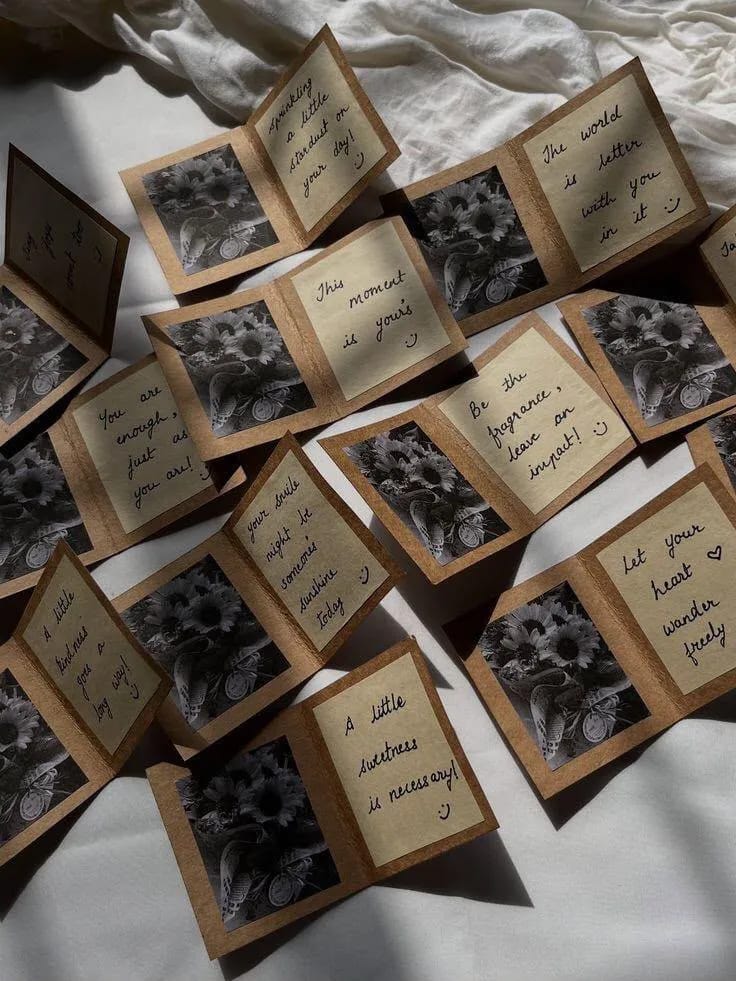 sprinkling
a little
stardust on
your day!
The world
is better
with you
in it
This moment
is yours
You are
enough,
just as
you are!
Be the
fragrance,
leave an
impact!
your smile
might be
someone's
sunshine
today
Let your
heart
wander
freely
A little
kindness
goes a
long way!
A little
sweetness
is necessary!